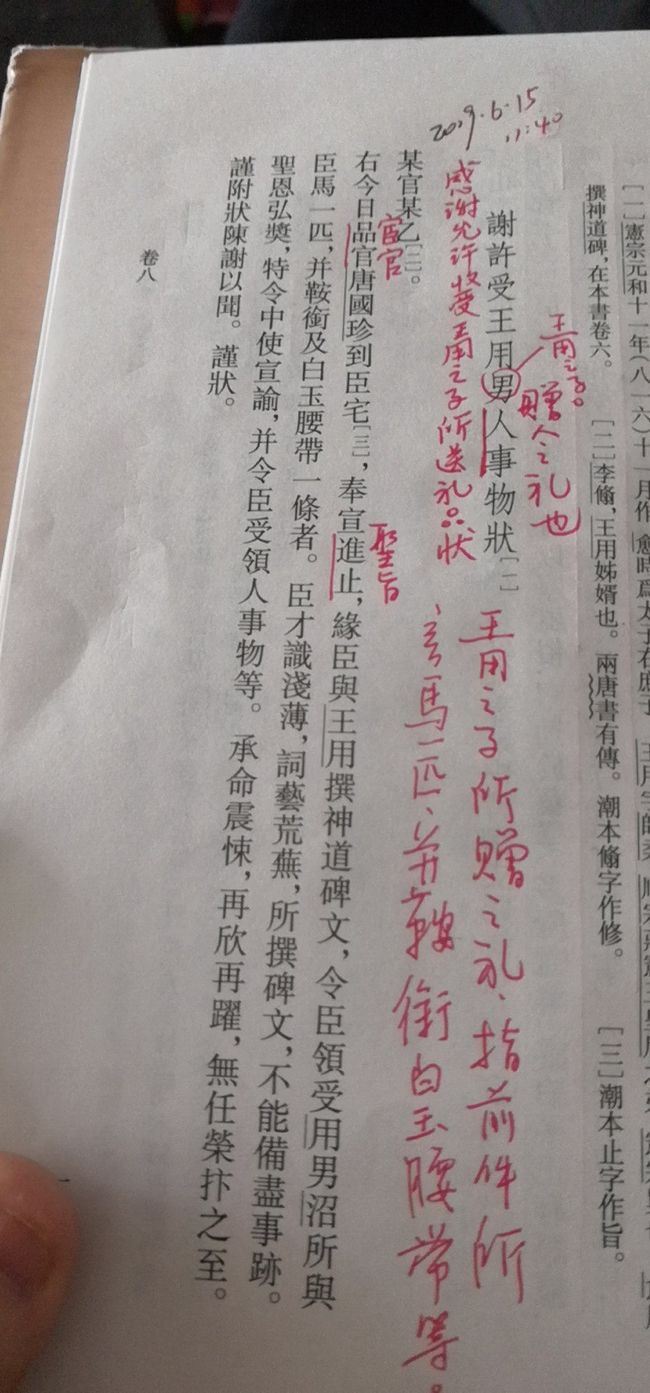 [一]憲宗元和十一年(八一六)十一月作,愈時爲太子右庶子
撰神道碑,在本書卷六。 [二]李翛,王用姊婿也。兩唐書有傳。潮本翛字作修。 [三]潮本止字作旨。
王用之子。
贈人之礼也
謝許受王用男人事物狀[一]
王用之子所贈之礼、指前件所
2019.6.15
11:40
感谢允许收受王用之子所送礼品状
言馬一匹、并鞍銜白玉腰带等。
某官某乙[二]。
宦官
右今日品官唐國珍到臣宅[三],奉宣進止,緣臣與王用撰神道碑文,令臣領受用男沼所與
聖旨
臣馬一匹,并鞍銜及白玉腰帶一條者。臣才識淺薄,詞藝荒蕪,所撰碑文,不能備盡事跡。
聖恩弘獎,特令中使宣諭,并令臣受領人事物等。承命震悚,再欣再躍,無任榮抃之至。
謹附狀陳謝以聞。謹狀。
卷八